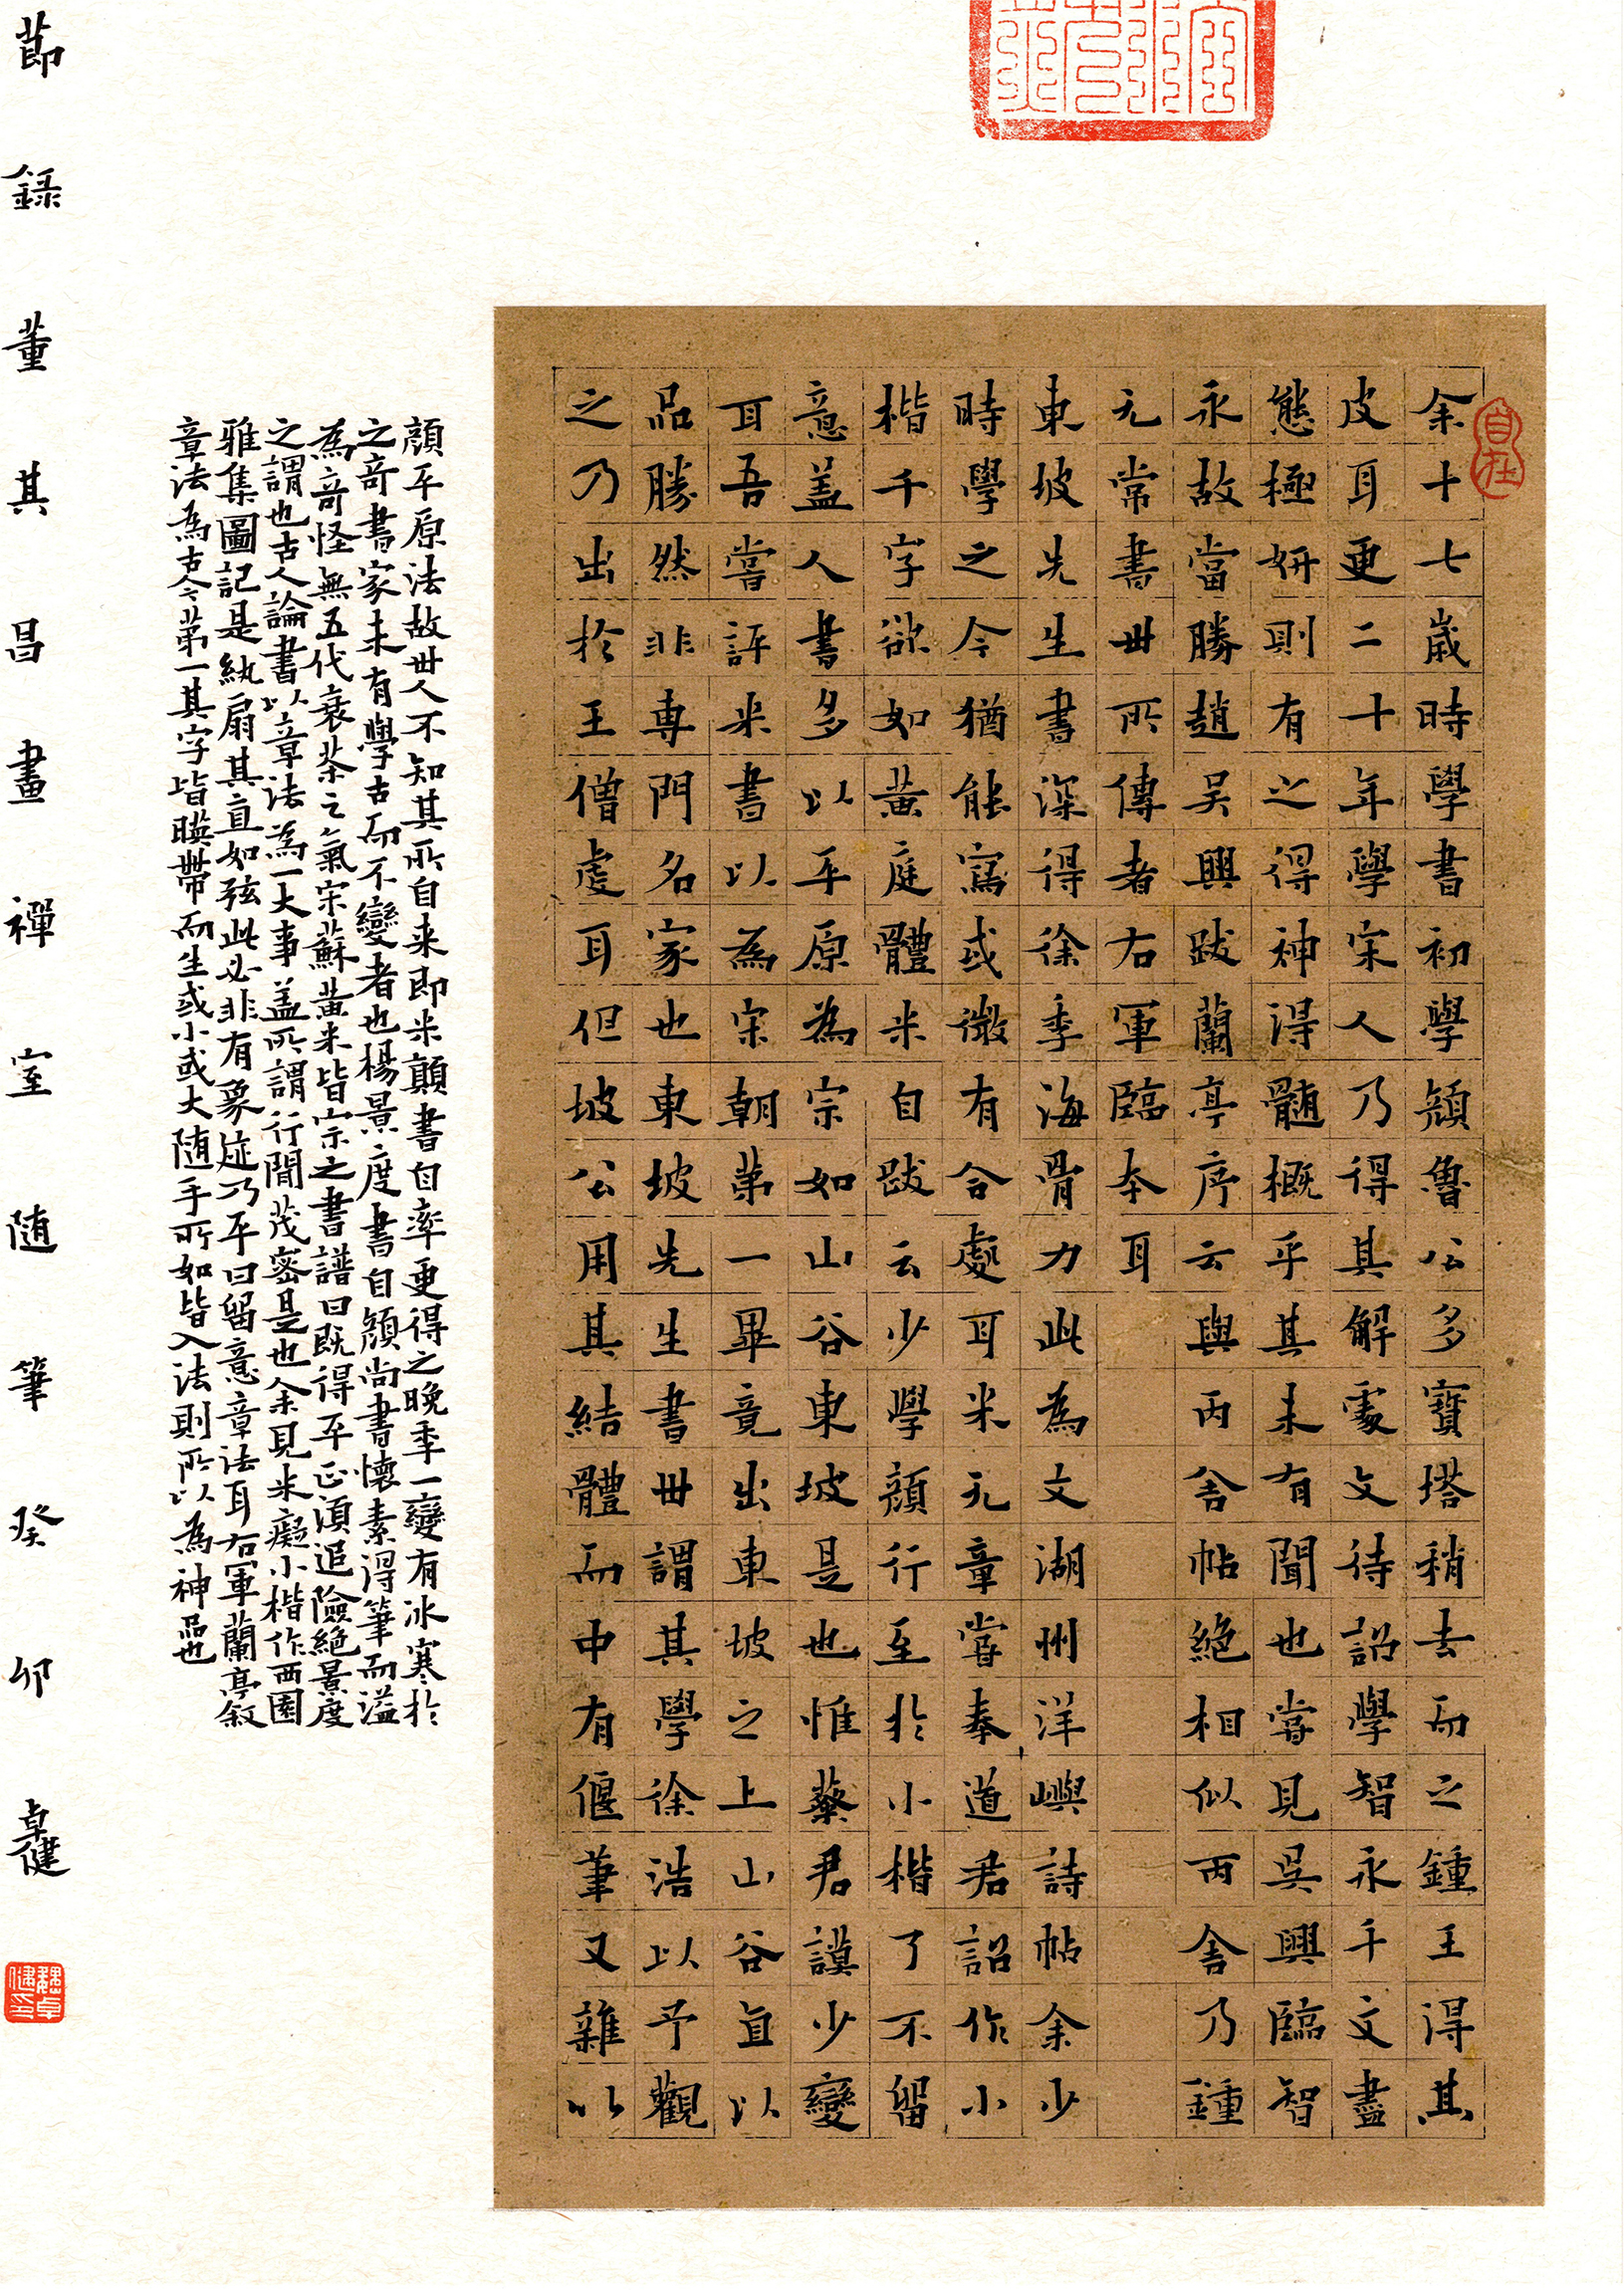 自在
余十七歲時學書初學顏魯公多寶塔稍去而之鍾王得其
皮耳更二十年學宋人乃得其解處文待詔學智永千文盡
態極妍則有之得神得髓概乎其未有聞也嘗見吳興臨智
永故當勝趙吳興跋蘭亭序云與丙舍帖絕相似丙舍乃鍾
元常書世所傳者右軍臨本耳
東坡先生書深得徐季海骨力此為文湖州洋嶼詩帖余少
時學之今猶能寫或微有合處耳米元章嘗奉道君詔作小
楷千字欲如黃庭體米自跋云少學顏行至於小楷了不留
意蓋人書多以平原為宗如山谷東坡是也惟蔡君謨少變
耳吾嘗評米書以為宋朝第一畢竟出東坡之上山谷直以
品勝然非專門名家也東坡先生書世謂其學徐浩以予觀
之乃出於王僧虔耳但坡公用其結體而中有偃筆又雜以
顏平原法故世人不知其所自來即米顛書自率更得之晚季一變有冰寒於
之奇書家未有學古而不變者也楊景度書自顏尚書懷素得筆而溢
為奇怪無五代衰苶之氣宋蘇黃米皆宗之書譜曰既得平正須追險絕景度
之謂也古人論書以章法為一大事蓋所謂行間茂密是也余見米癡小楷作西園
雅集圖記是紈扇其直如弦此必非有象跡乃平日留意章法耳右軍蘭亭敘
章法為古今第一其字皆暎帶而生或小或大隨手所如皆入法則所以為神品也
節錄董其昌畫禪室隨筆癸卯卓健
魏卓健印